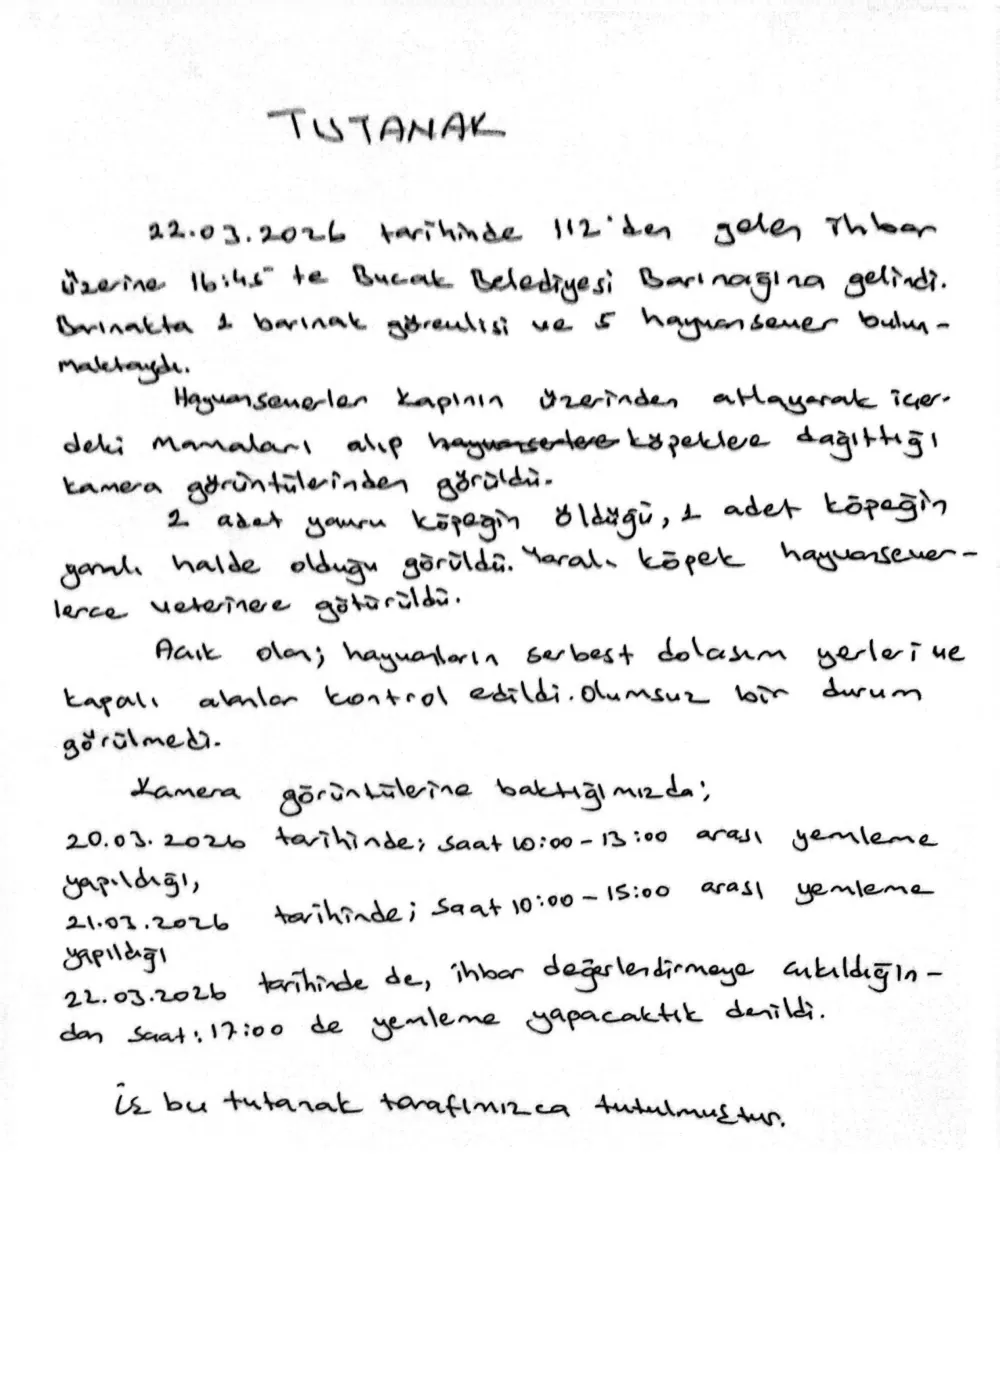 TUTANAK
22.03.2026 tarihinde 112'den gelen ihbar
üzerine 16:45'te Bucak Belediyesi Barınağına gelindi.
Barınakta 1 barınak görevlisi ve 5 hayvansever bulun-
maktaydı.
Hayvanseverler kapının üzerinden atlayarak içer-
deki mamaları alıp hayvanserlere köpeklere dağıttığı
kamera görüntülerinden görüldü.
2 adet yavru köpeğin öldüğü, 1 adet köpeğin
yaralı halde olduğu görüldü. Yaralı köpek hayvansever-
lerce veterinere götürüldü.
Açık olan; hayvanların serbest dolaşım yerleri ve
kapalı alanlar kontrol edildi. Olumsuz bir durum
görülmedi.
Kamera görüntülerine baktığımızda;
20.03.2026 tarihinde; saat 10:00-13:00 arası yemleme
yapıldığı,
21.03.2026 tarihinde; saat 10:00-15:00 arası yemleme
yapıldığı
22.03.2026 tarihinde de, ihbar değerlendirmeye çıkıldığın-
dan saat: 17:00 de yemleme yapacaktık denildi.
İş bu tutanak tarafımızca tutulmuştur.